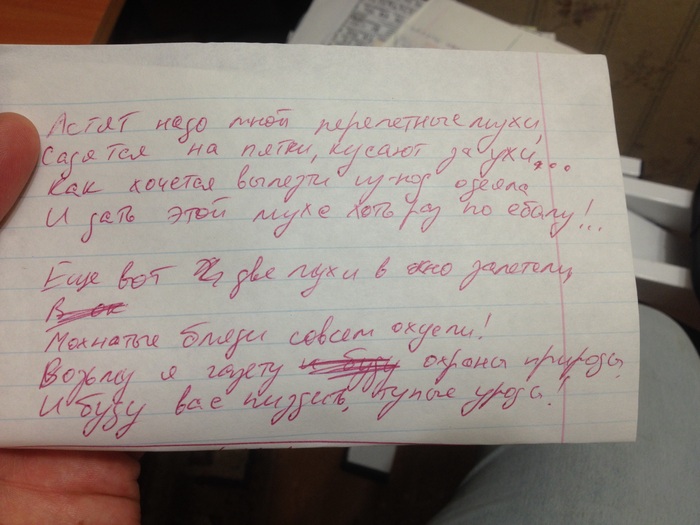 Лстят надо мной перелетные мухи,
Садятся на пятки, кусают за ухи,...
Как хочется вылезти из-под одеяла
И дать этой мухе хоть раз по ебалу!..
Еще вот две мухи в окно залетели,
Мохнатые бляди совсем охуели!
Возьму я газету охраны природы
И буду вас пиздить, тупые уроды!